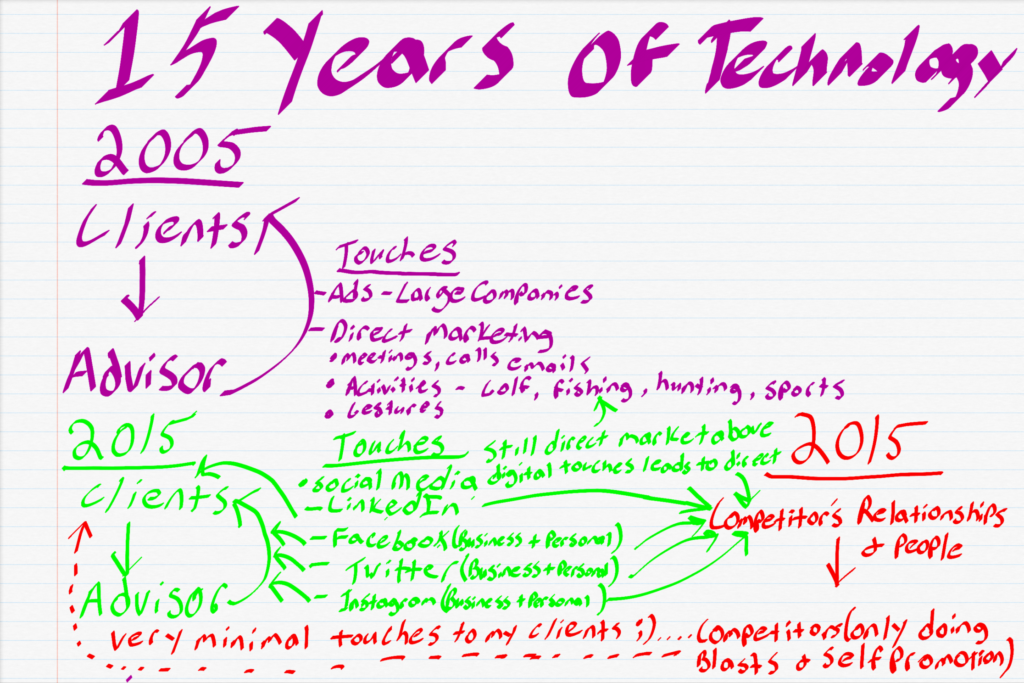 15 Years Of Technology
2005
Clients
Touches
- Ads - Large Companies
- Direct Marketing
• meetings, calls emails
Advisor
• Activities - Golf, fishing, hunting, sports
• Gestures
2015
Touches
still direct market above
2015
• social media digital touches leads to direct
Clients
- LinkedIn
Competitor's Relationships
& People
- Facebook (Business + Personal)
- Twitter (Business + Personal)
Advisor
- Instagram (Business + Personal)
very minimal touches to my clients ;).... Competitors (only doing
Blasts & Self Promotion)